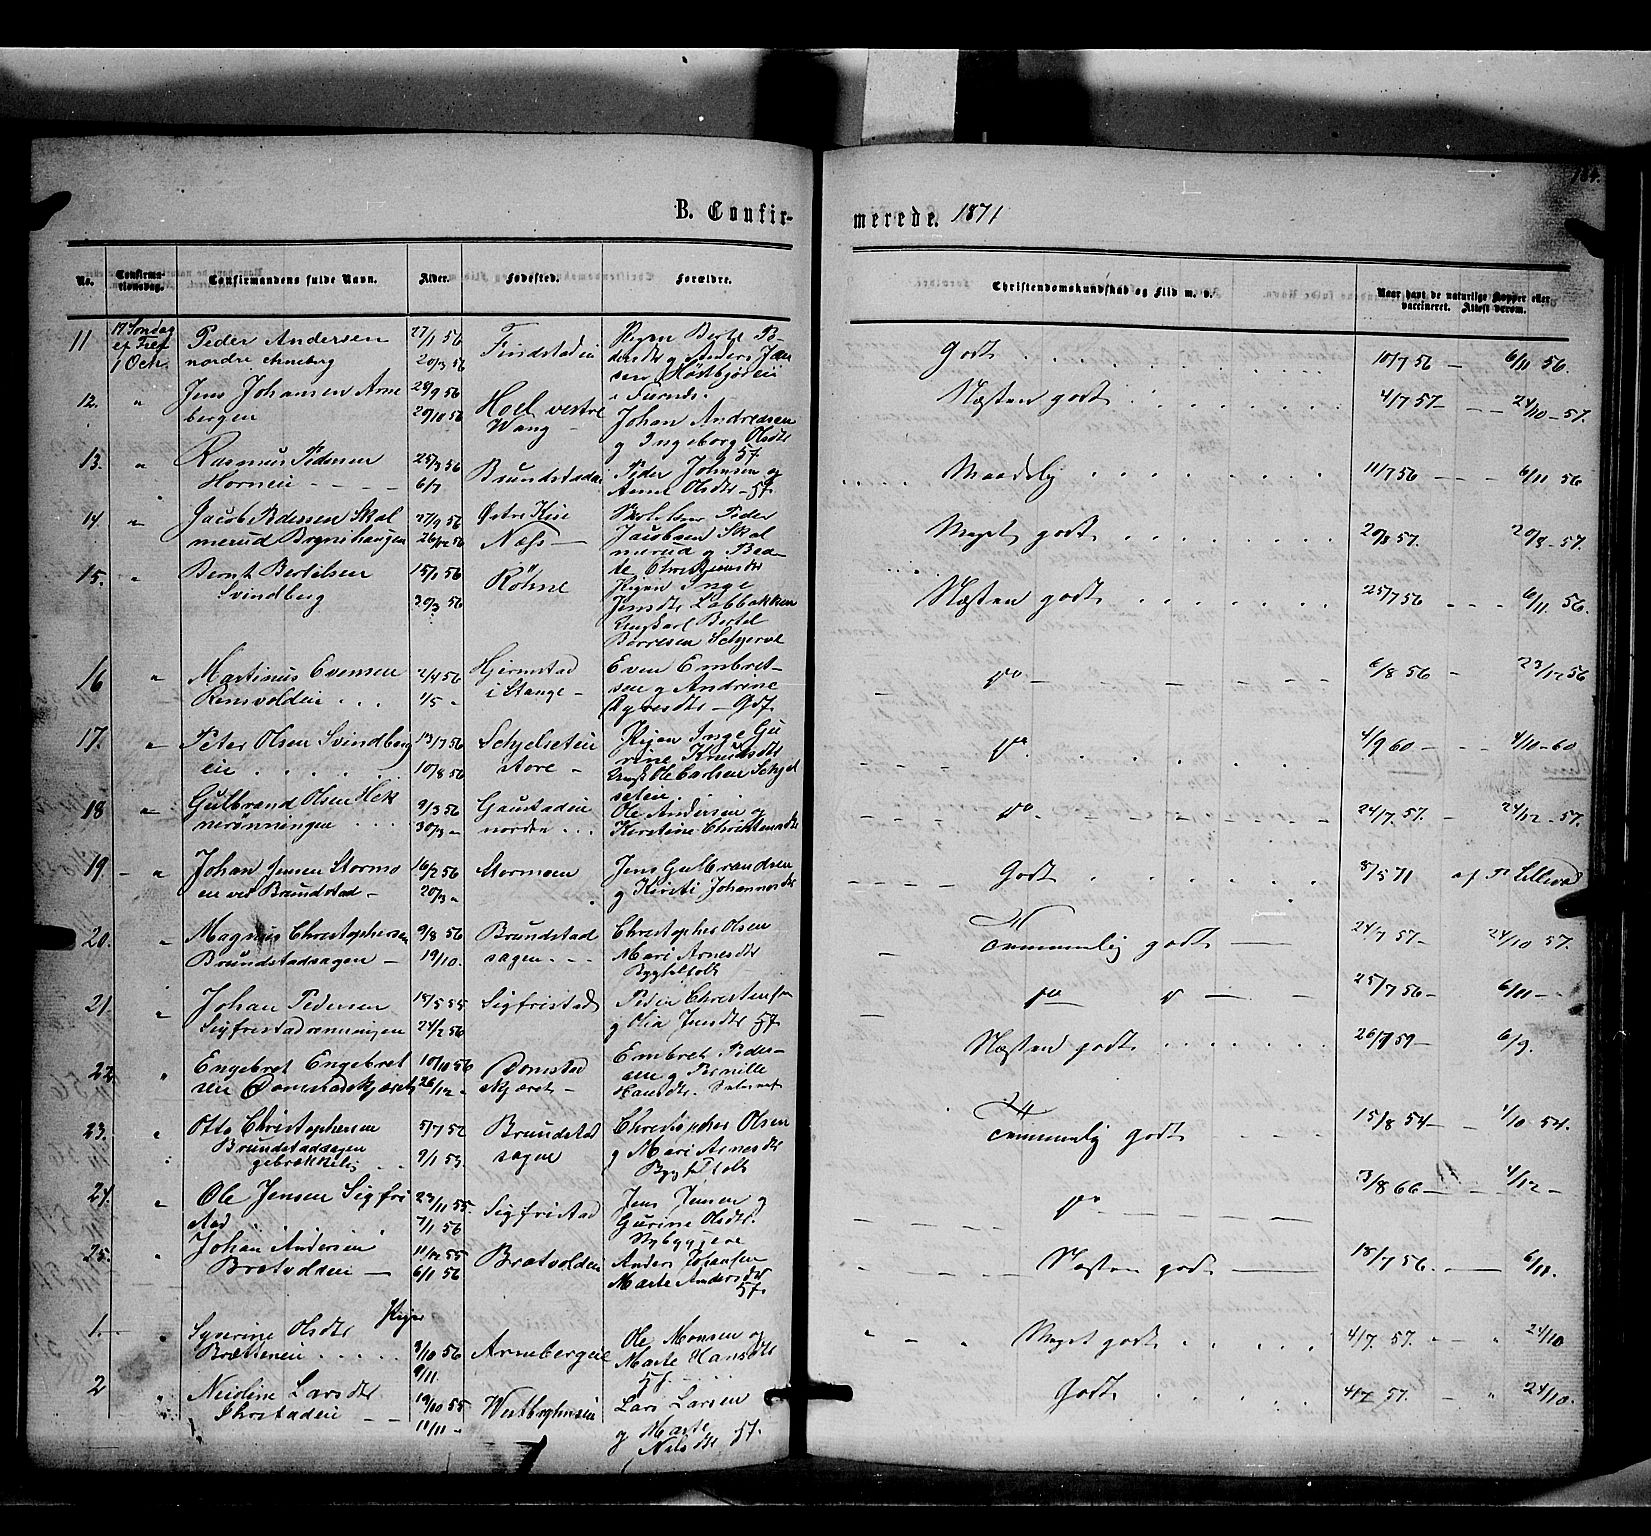 184.
B. Confir-
merede. 1871
No.
Confirma-
tionsdag.
Confirmandens fulde Navn.
Alder.
Fødested.
Forældre.
Christendomskundskab og Flid m. v.
Naar havt de naturlige Kopper eller
vaccineret. Attest derom.
11
17 Søndag
ef Tref
1 Oct.
Peder Andersen
nordre Arneberg
27/1 56
20/3 56
Findstadeie
Pigen Berthe Pe-
Godt
10/7 56 — 6/11 56.
12. "
Jens Johansen Arne
bergen
28/9 56
29/10 56
Hoel vestre
Wang —
Johan Andressen
g Ingeborg Olsdtr
Næsten godt
4/7 57 — 24/10 - 57.
13. "
Rasmus Pedersen
Horneie
25/3 56
6/7
Brundstadeie
Peder Johnsen og
Anne Olsdtr —
Maadelig
11/7 56 — 6/11 56
14 "
Jacob Pedersen Skal
merud
27/9 56
26/12 56
Østre Kise
Næss —
Peder
Jacobsen Skal
merud g Bea-
te
Meget godt
20/8 57. 20/8 - 57.
15. "
Bernt Bertelsen
Svindberg
15/1 56
30/3 56
Röhne
Pigen Inge
Jensdtr Labbakken
Ungkarl Bertel
Børresen Schjerve
Næsten godt
25/7 56 — 6/11 56.
16 "
Martinus Evensen
Rensvoldeie
2/4 56
1/5 —
Hjermstad
i Stange —
Even Embret-
sen g Andrine
do
6/8 56 — 23/12 56
17. "
Peter Olsen Svindberg
eie
13/7 56
10/8 56
Schjelseteie
store —
Pigen Inge Gu
rine Knudsdtr
Ungk Ole Carlsen Schjel
seteie
do
4/9 60 — 4/10 - 60
18 "
Gulbrand Olsen Hek
nerønningen
9/3 56
30/3 —
Gaustadeie
nordre
Ole Andersen og
Kirstine Christensdtr
do
24/7 57. 24/12 - 57.
19. "
Johan Jensen Stormo
en ved Brundstad —
16/2 56
20/3 —
Stormoen
Jens Gulbrandsen
g Kirsti Johannesdtr
Godt
8/5 71 af P Lilleva
20. "
Magnus Christophersen
Brundstadsagen —
9/8 56
19/10.
Brundstad
sagen
Christopher Olsen
Mari Arnesdtr
Bygselfolk
Temmelig godt
24/7 57 — 24/10 57.
21. "
Johan Pedersen
Sigfristadrønningen
18/5 55
24/2 56
Sigfristad
Peder Christensen
g Olia Jensdtr
do
25/7 56 — 6/11 —
22. "
Engebret Engebret
sen Dømstadskjæret
10/10 56
26/12 —
Dømstad
skjæret —
Embret Peder-
sen g Pernille
Hansdtr.
Næsten godt
26/9 59 — 6/9.
23. "
Otto Christophersen
Brundstadsagen
gebrækkelig
5/7 52
9/1 53.
Brundstad
sagen
Christopher Olsen
g Mari Arnesdtr
Bygselfolk
Temmelig godt
15/8 54 — 4/10 54.
24. "
Ole Jensen Sigfri
stad
23/11 55
7/1 56
Sigfristad
Jens Jensen g
Gurine Olsdtr.
do
3/8 66 — 4/12 —
25. "
Johan Andersen
Bratvoldeie —
11/12 55
6/1 56
Bratvoldeie
Anders Johansen
Marte Andersdtr
Næsten godt
18/7 56. — 6/11.
Piger
1. "
Syverine Olsdtr
Brætteneie
9/10 56
9/11
Arnebergeie
Ole Monsen og
Marte Hansdtr
Meget godt
4/7 57. " 24/10
2 "
Larsdtr
19/10 55
11/11 —
Lars Larsen
g Marte
Nilsdtr
Godt
4/7 57. " 24/10.